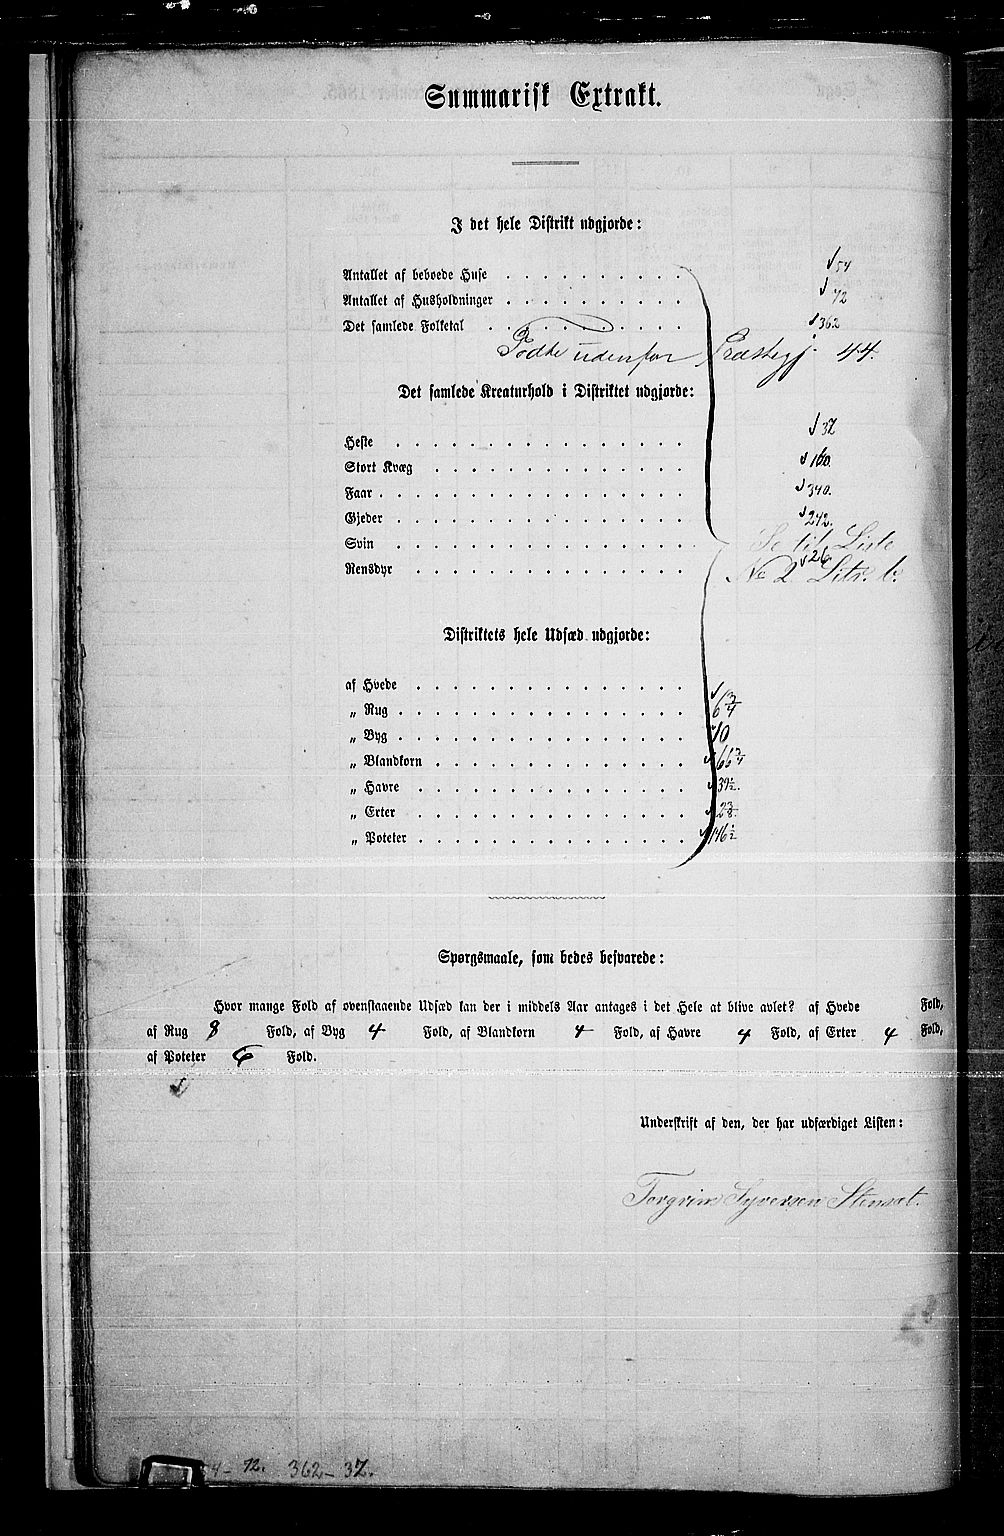 Summarisk Extrakt.
I det hele Distrikt udgjorde:
Antallet af beboede Huse . . . . . . . . . . 54
Antallet af Husholdninger . . . . . . . . . . 72
Det samlede Folketal . . . . . . . . . . 362
Fødte udenfor Præstegj. 44.
Det samlede Kreaturhold i Distriktet udgjorde:
Heste . . . . . . . . . . . . . . . . 37
Stort Kvæg . . . . . . . . . . . . . . 160.
Faar . . . . . . . . . . . . . . . . . 340.
Gjeder . . . . . . . . . . . . . . . . 242.
Svin . . . . . . . . . . . . . . . . 26
Se til Liste
Rensdyr . . . . . . . . . . . . . . .
No 2 Litr. b.
Distriktets hele Udsæd udgjorde:
af Hvede . . . . . . . . . . . . . . .
„ Rug . . . . . . . . . . . . . . . . 6 3/4
„ Byg . . . . . . . . . . . . . . . . 10
„ Blandkorn . . . . . . . . . . . . . . 66 3/4
„ Havre . . . . . . . . . . . . . . . 39 1/2.
„ Erter . . . . . . . . . . . . . . . 2 3/8.
„ Poteter . . . . . . . . . . . . . . . 146 1/2
Spørgsmaale, som bedes besvarede:
Hvor mange Fold af ovenstaaende Udsæd kan der i middels Aar antages i det Hele at blive avlet? af Hvede Fold,
af Rug 8 Fold, af Byg 4 Fold, af Blandkorn 4 Fold, af Havre 4 Fold, af Erter 4 Fold,
af Poteter 6 Fold.
Underskrift af den, der har udfærdiget Listen:
Torgrim Syversen Stensæt.
4 – 72. 362 – 37.